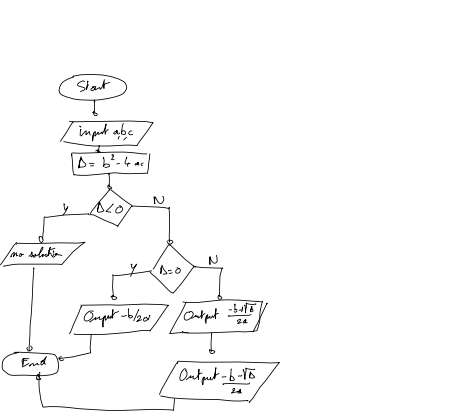 Start
input a,b,c
Δ = b² - 4ac
Δ<0
Y
N
no solution
Δ=0
Y
N
Output -b/2a
Output (-b+√Δ)/2a
Output (-b-√Δ)/2a
End